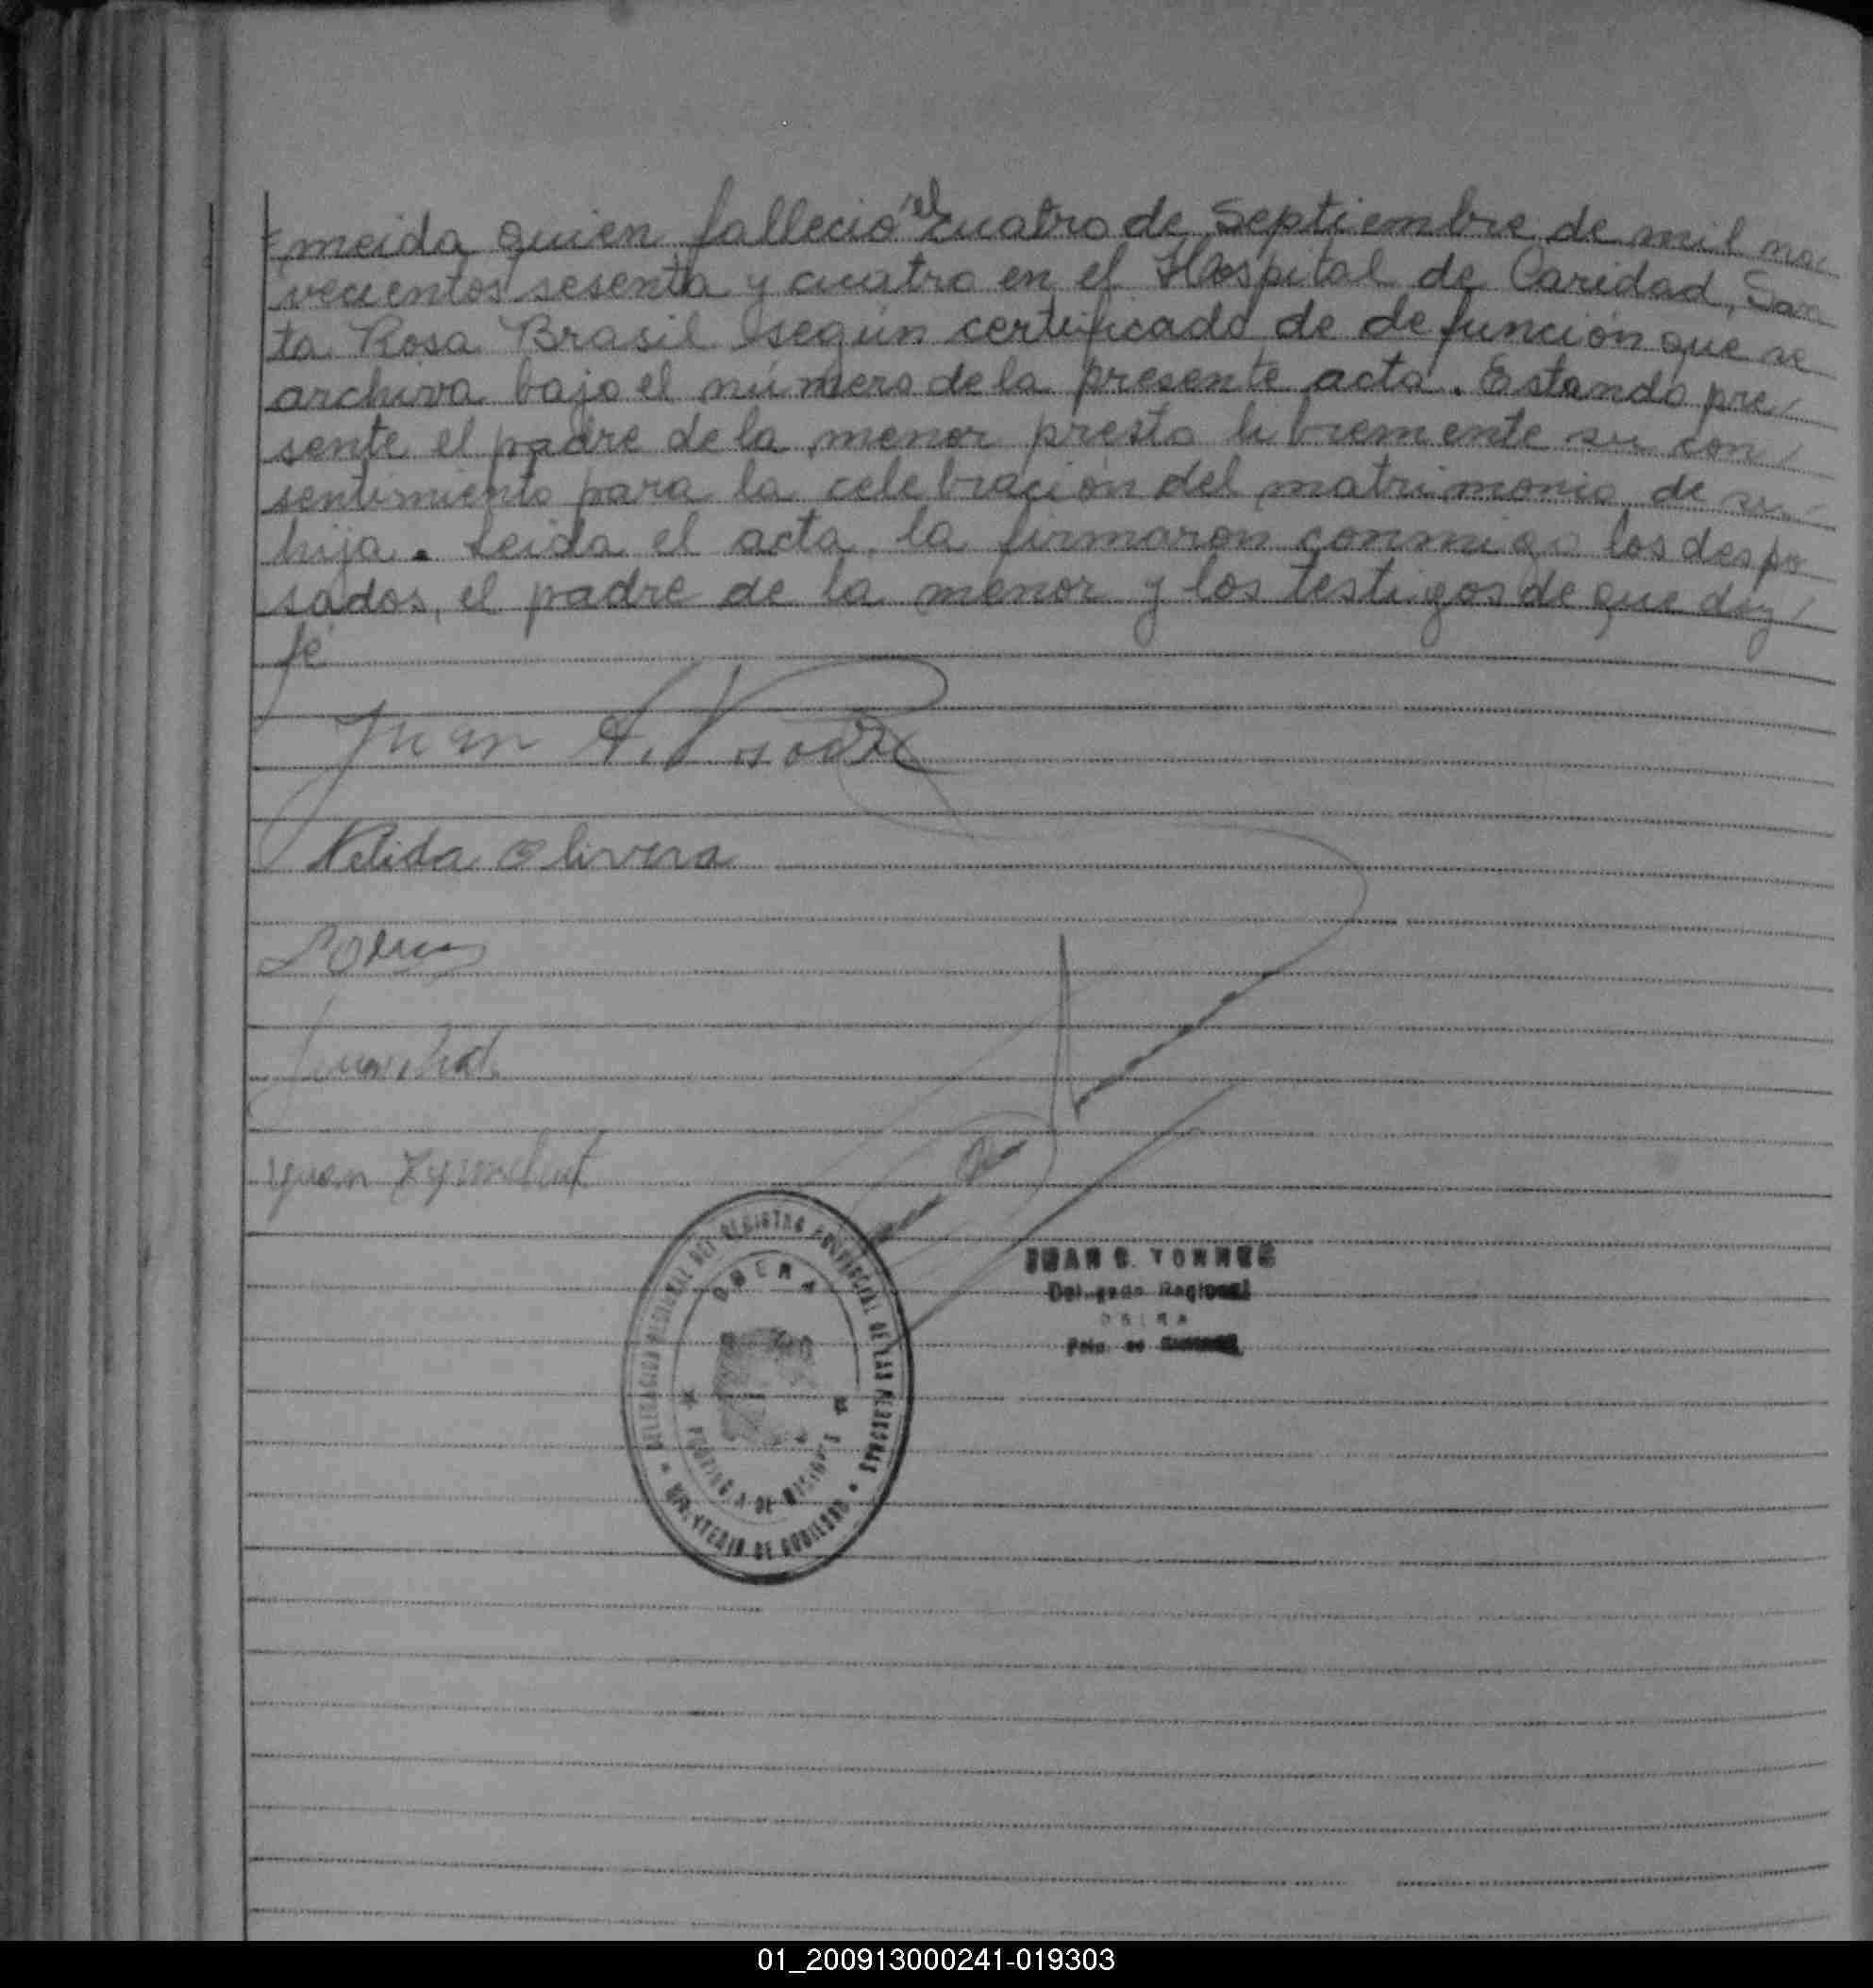 meida quien fallecio el cuatro de Septiembre de mil no
vecientos sesenta y cuatro en el Hospital de Caridad, San
ta Rosa Brasil según certificado de defunción que se
archiva bajo el número de la presente acta. Estando pre/
sente el padre de la menor presta libremente su con/
sentimiento para la celebración del matrimonio de su
hija. Leida el acta, la firmaron conmigo los despo
sados, el padre de la menor y los testigos de que doy/
fé
Juan A.
Nelida Olivera
Juan
DELEGACION REGIONAL DEL REGISTRO PROVINCIAL DE LAS PERSONAS
OBERA
PROVINCIA DE MISIONES
MINISTERIO DE GOBIERNO
JUAN TORRES
Delegado Regional
OBERA
01_200913000241-019303